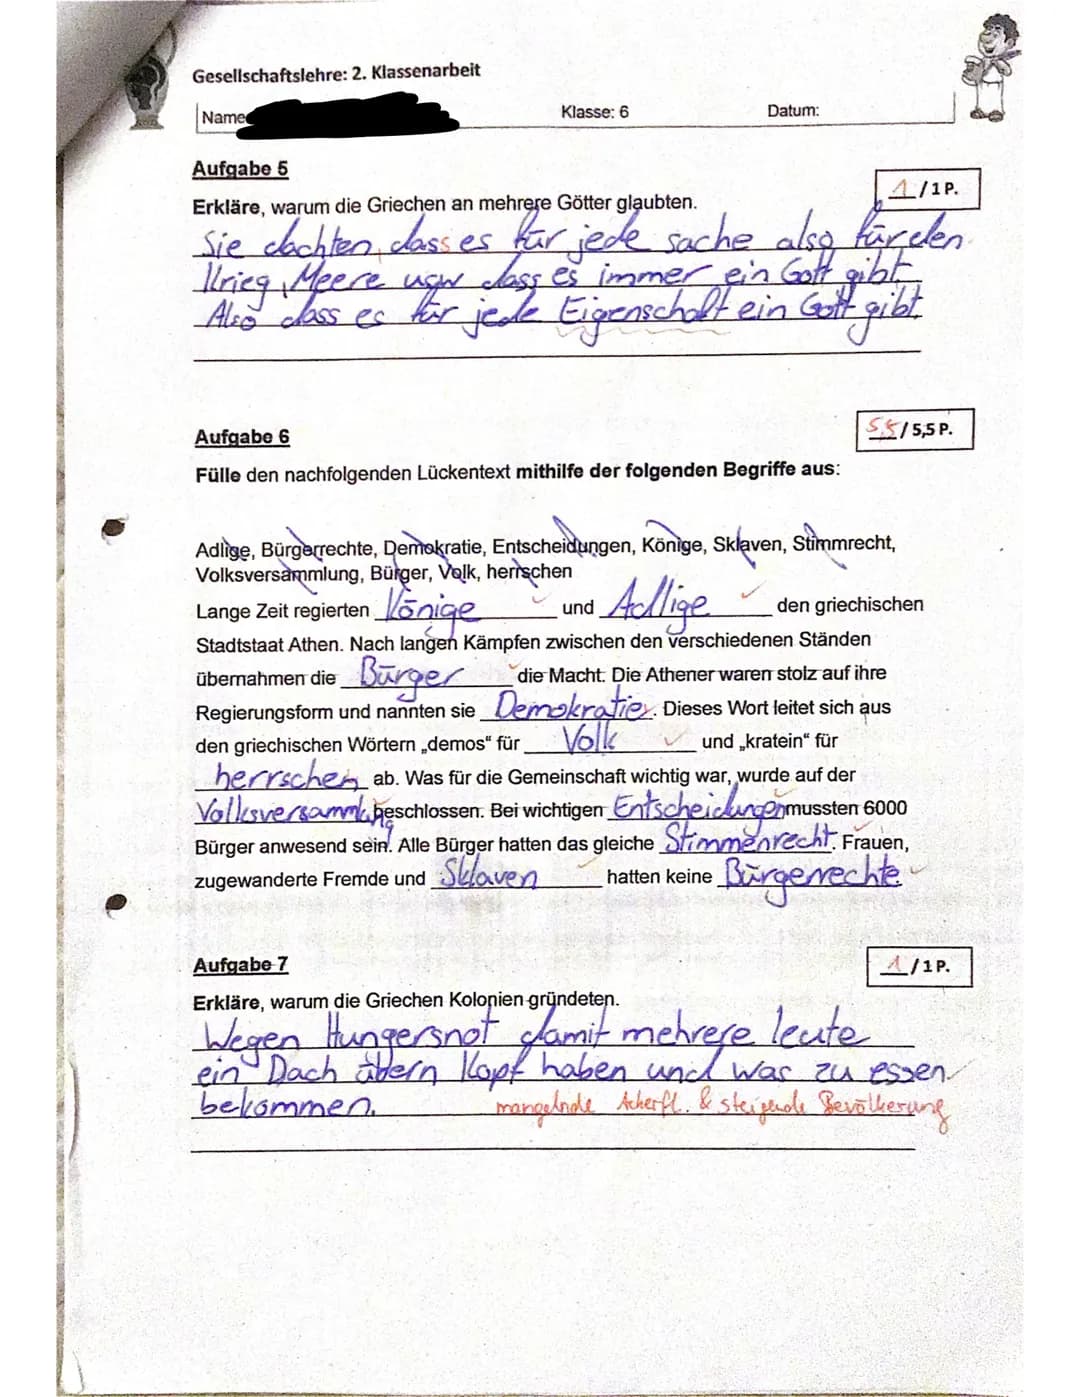 Gesellschaftslehre: 2. Klassenarbeit
Name Klasse: 6 Datum:
Aufgabe 5
1/1P.
Erkläre, warum die Griechen an mehrere Götter glaubten.
Sie dachten, dass es für jede sache also für den
Krieg, Meere usw dass es immer ein Gott gibt
Also dass es für jede Eigenschaft ein Gott gibt.
Aufgabe 6
5,5/5,5 P.
Fülle den nachfolgenden Lückentext mithilfe der folgenden Begriffe aus:
Adlige, Bürgerrechte, Demokratie, Entscheidungen, Könige, Sklaven, Stimmrecht,
Volksversammlung, Bürger, Volk, herrschen
Lange Zeit regierten Könige und Adlige den griechischen
Stadtstaat Athen. Nach langen Kämpfen zwischen den verschiedenen Ständen
übernahmen die Bürger die Macht. Die Athener waren stolz auf ihre
Regierungsform und nannten sie Demokratie. Dieses Wort leitet sich aus
den griechischen Wörtern „demos“ für Volk und „kratein“ für
herrschen ab. Was für die Gemeinschaft wichtig war, wurde auf der
Volksversammlung beschlossen. Bei wichtigen Entscheidungen mussten 6000
Bürger anwesend sein. Alle Bürger hatten das gleiche Stimmenrecht. Frauen,
zugewanderte Fremde und Sklaven hatten keine Bürgerrechte.
Aufgabe 7
1/1P.
Erkläre, warum die Griechen Kolonien gründeten.
Wegen Hungersnot damit mehrere leute
ein Dach übern Kopf haben und was zu essen
bekommen. mangelnde Ackerfl. & steigende Bevölkerung